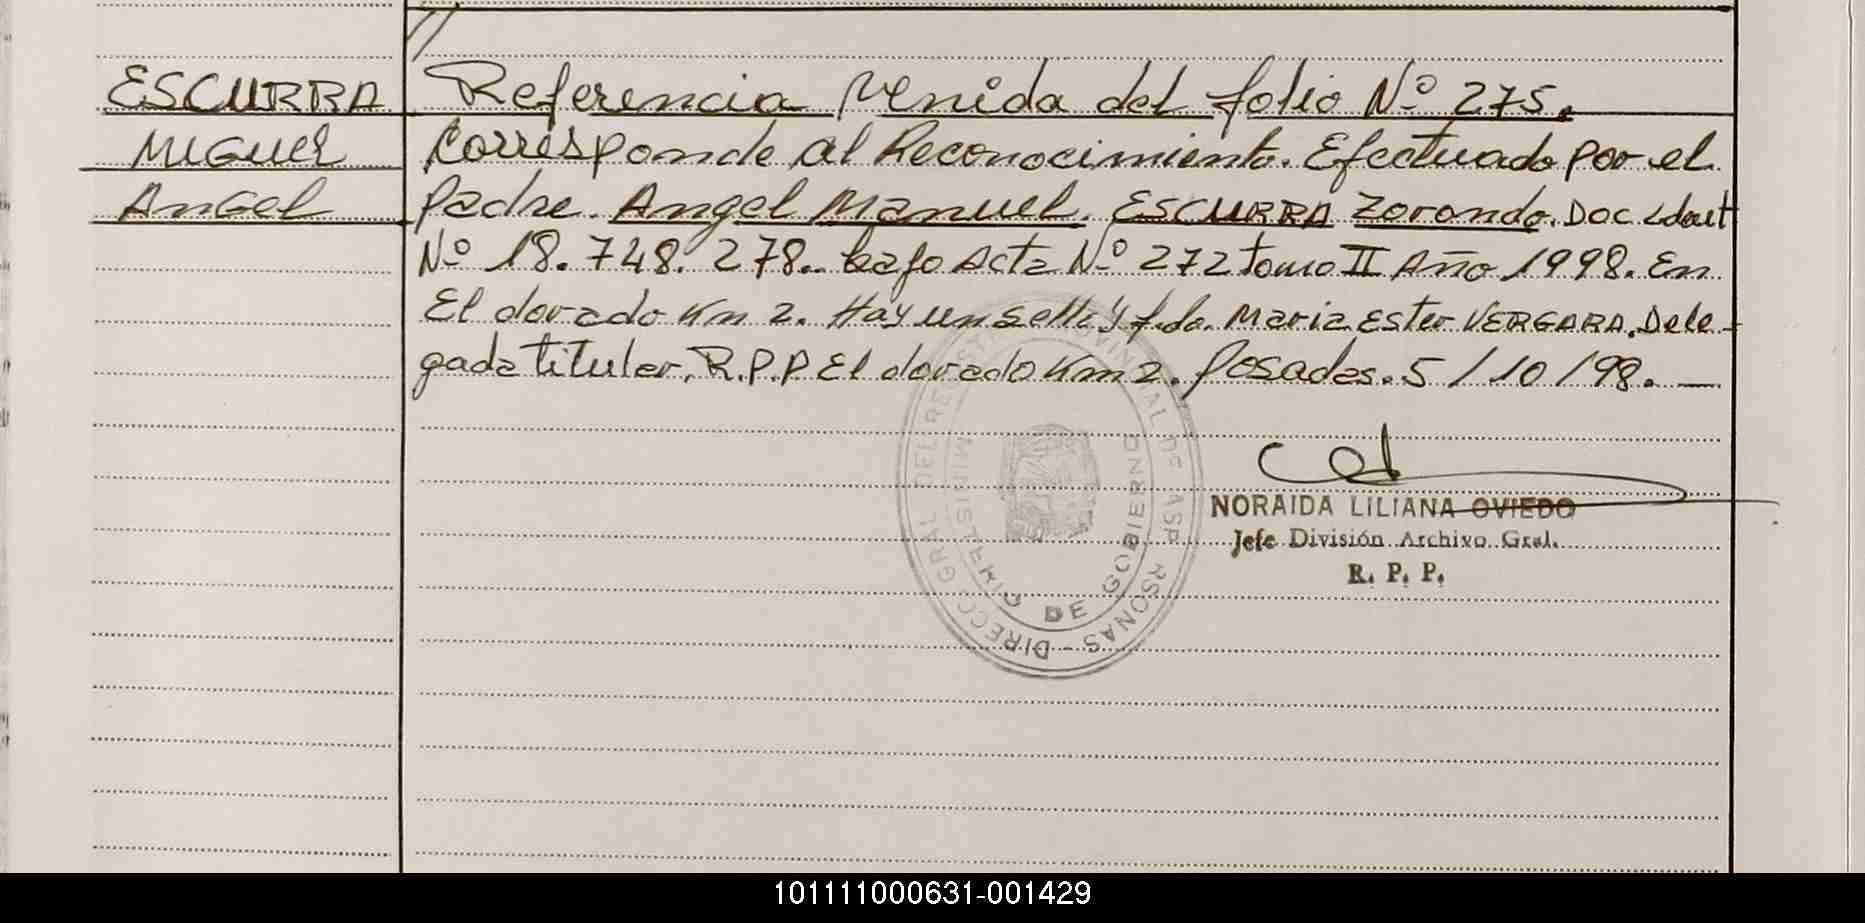 ESCURRA
MIGUEL
ANGEL
Referencia venida del folio Nº 275.
Corrisponde al Reconocimiento. Efectuado por el
padre. Angel Manuel. ESCURRA Zorondo. Doc Ident
Nº 18.748.278.. bajo Acta Nº 272 tomo II Año 1998. En
El dorado Km 2. Hay un sello y fdo. Maria Ester VERGARA. Dele-
gada titular. R.P.P El dorado Km 2. Posadas. 5/10/98. —
DIRECC GRAL DEL REGISTRO PROVINCIAL DE
RSONAS -
MINISTERIO DE GOBIERNO
NORAIDA LILIANA OVIEDO
Jefe División Archivo Gral.
R. P. P.
101111000631-001429